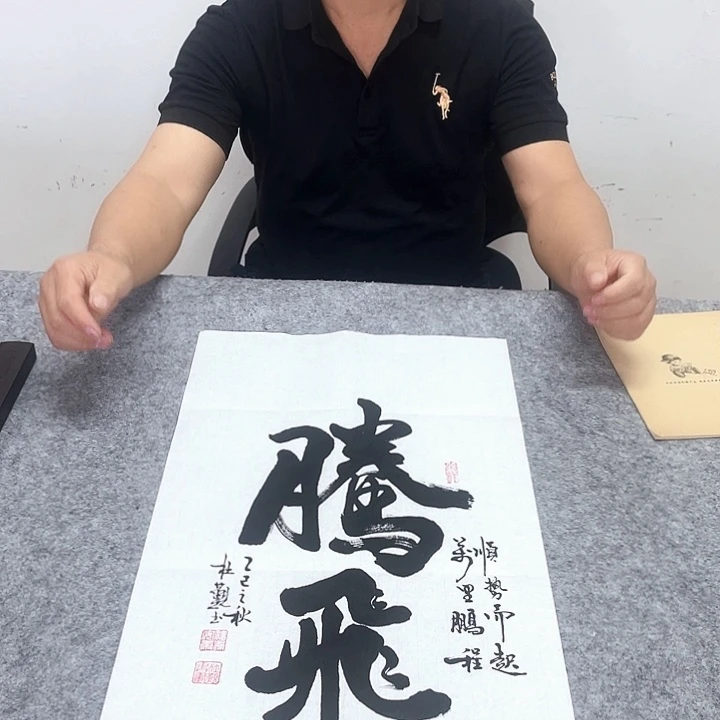 騰飛
順勢而起
萬里鵬程
乙巳之秋
杜勤書